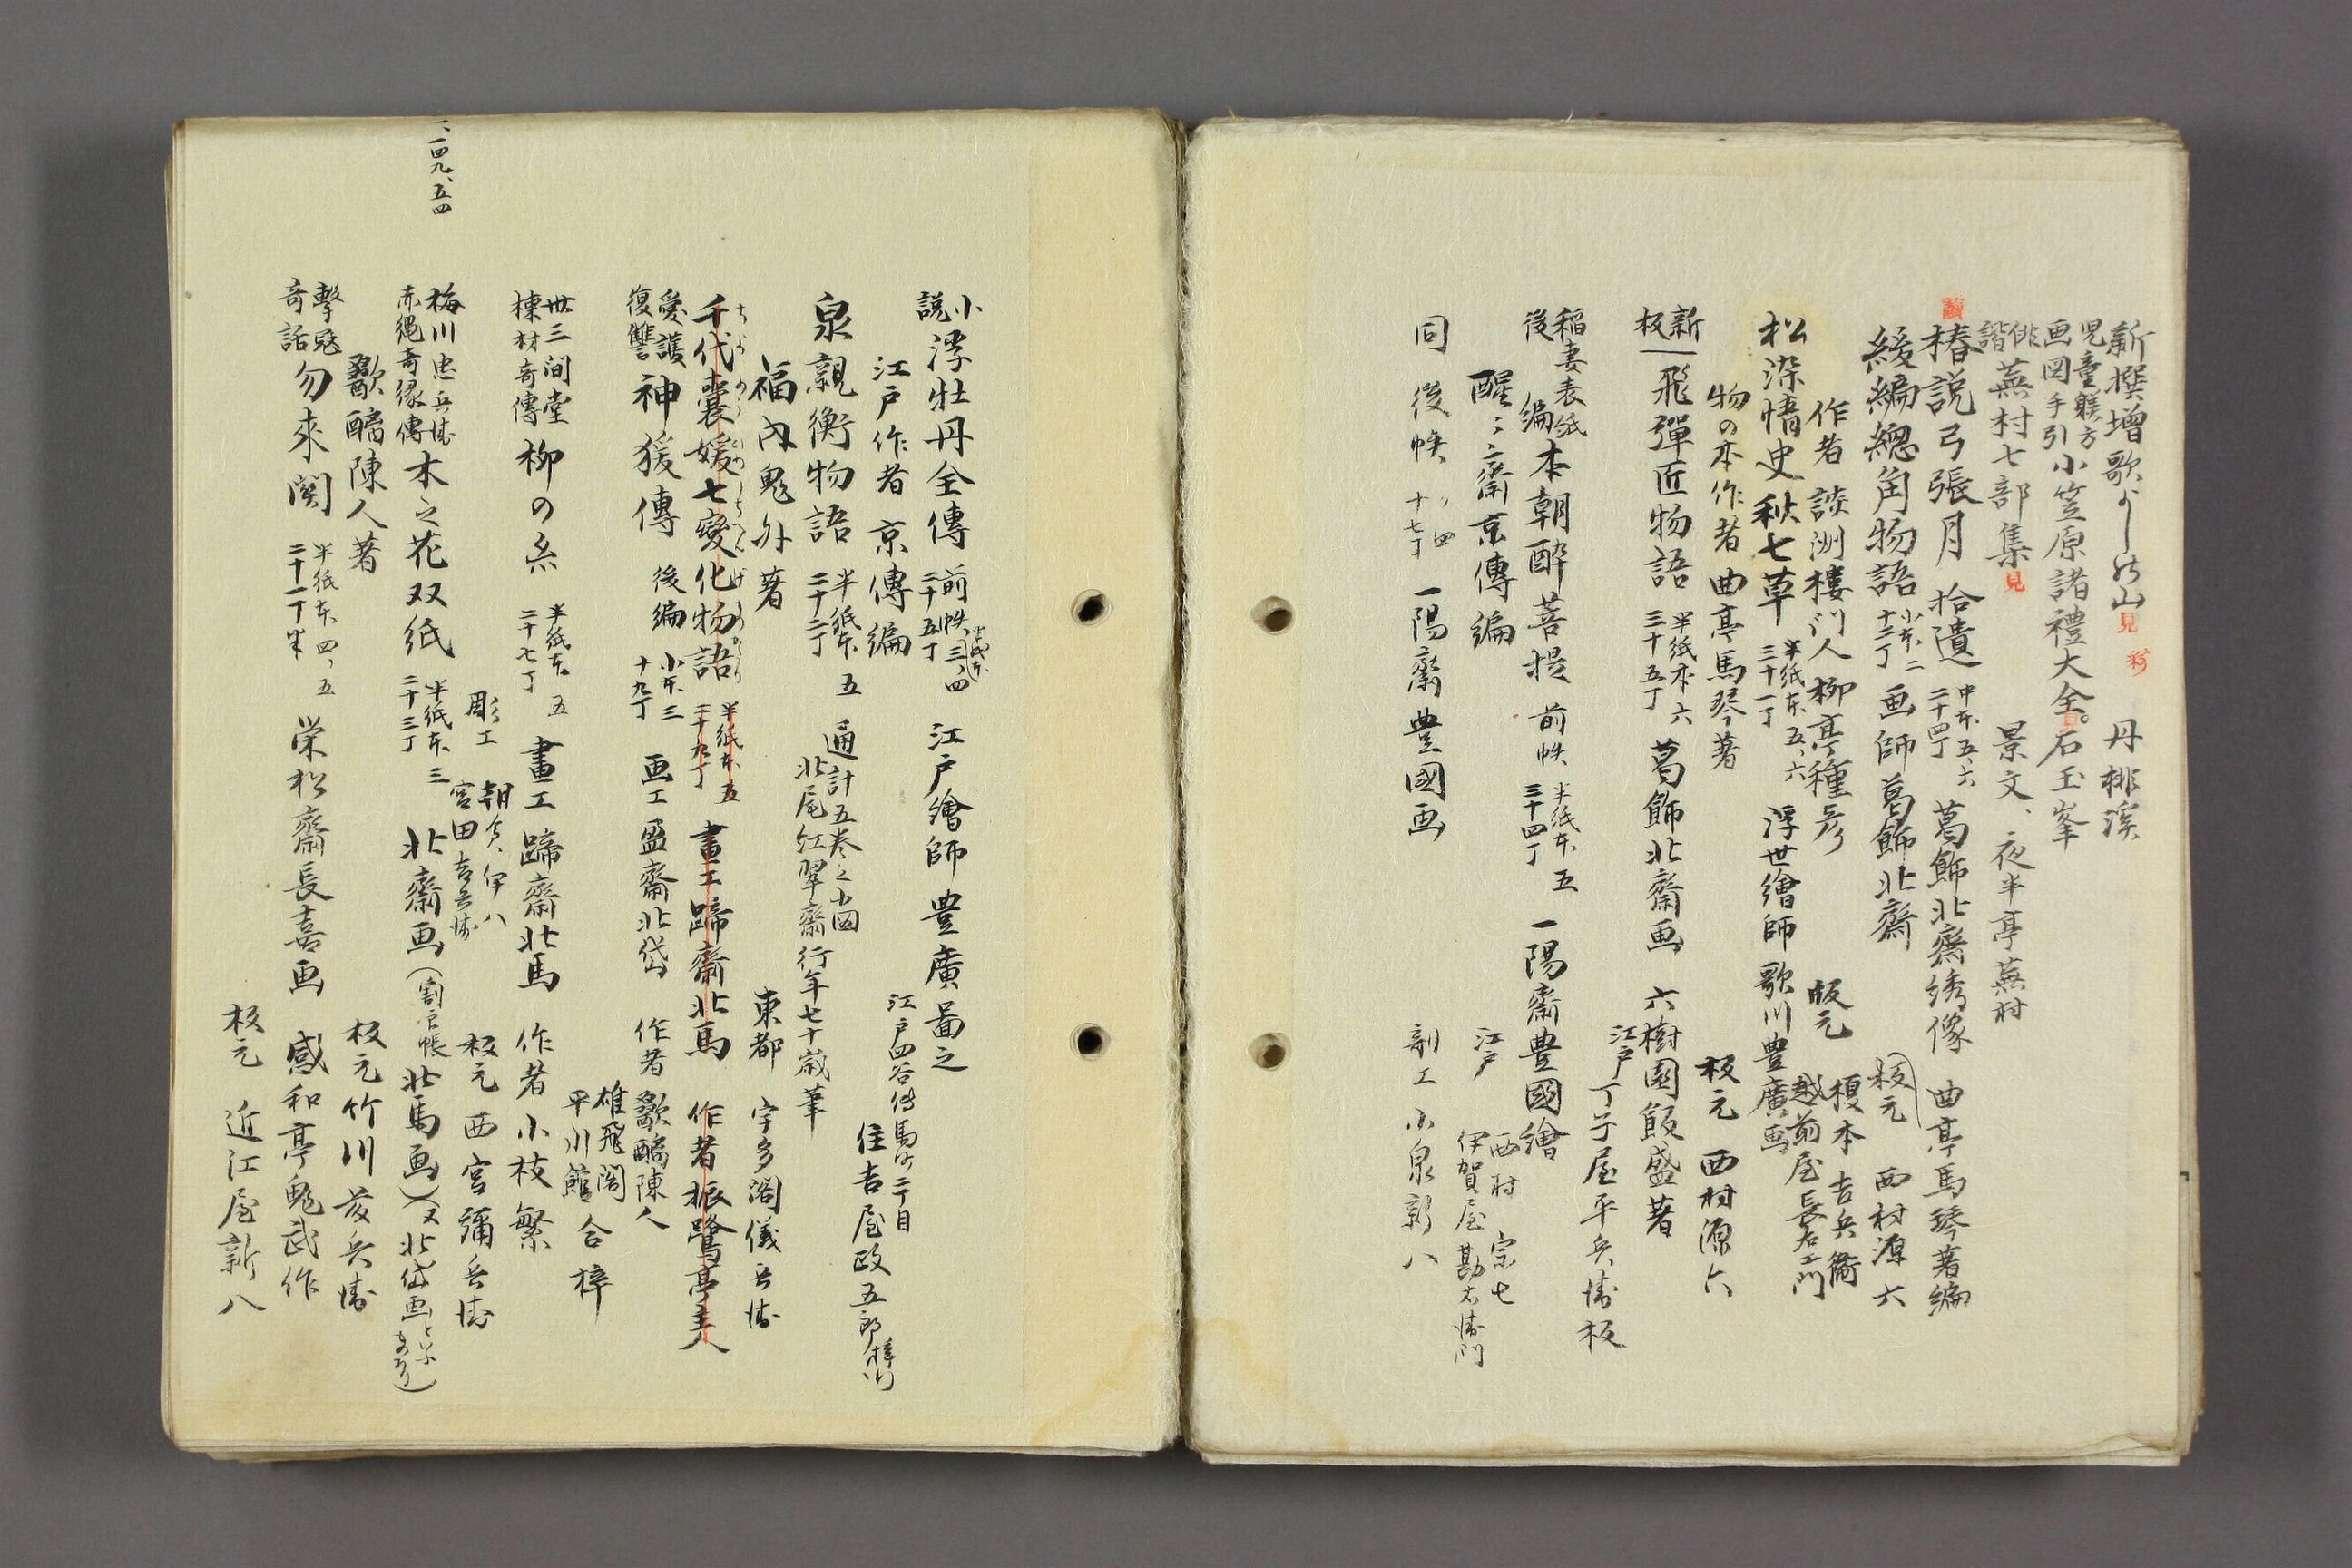 新撰增歌よし野山 見 丹桃溪
児童躾方
画図手引 小笠原諸禮大全 見 石玉峯
俳諧 蕪村七部集 見 景文、夜半亭蕪村
讀 椿説弓張月 拾遺 中本五、六 二十四丁 葛飾北齋綉像 曲亭馬琴著編
板元 西村源六
緩編總角物語 小本二 十二丁 画師葛飾北齋
作者 談洲樓門人柳亭種彦 版元 榎本吉兵衞
越前屋長右エ門
松染情史秋七草 半紙本五、六 三十一丁 浮世繪師 歌川豊廣画
物の本作者 曲亭馬琴著 板元 西村源六
新板 飛彈匠物語 半紙本六 三十五丁 葛飾北齋画 六樹園飯盛著
江戸 丁子屋平兵衛板
稲妻表紙
後編 本朝酔菩提 前帙 半紙本五 三十四丁 一陽齋豊國繪
醒々齋京傳編 江戸 西村宗七
伊賀屋勘右衛門
同 後帙 〃四 十七丁 一陽齋豊國画 剞工 小泉新八
小説 浮牡丹全傳 前帙 半紙本三、四 二十五丁 江戸繪師 豊廣畐之
江戸作者 京傳編 江戸四谷傳馬町二丁目
住吉屋政五郎梓行
泉親衡物語 半紙本五 二十二丁 通計五巻之小図
北尾紅翠齋行年七十歳筆
福内鬼外著 東都 宇多閣儀兵衛
千代嚢媛七變化物語 半紙本五 二十九丁 畫工蹄齋北馬 作者振鷺亭主人
愛護
復讐 神猨傳 後編 小本三 十九丁 画工盈齋北岱 作者 歠醨陳人
雄飛閣
平川館 合梓
丗三間堂
棟材奇傳 柳の糸 半紙本五 二十七丁 畫工蹄齋北馬 作者小枝繁
彫工 朝倉伊八
宮田吉兵衛 板元 西宮彌兵衛
梅川忠兵衛
赤縄奇縁傳 木之花双紙 半紙本三 二十三丁 北齋画(割戸帳北馬画)(又北岱画といふものあり)
歠醨陳人著 板元竹川茂兵衛
撃冦
奇話 勿來関 半紙本四、五 二十一丁半 栄松齋長喜画 感和亭鬼武作
板元 近江屋新八
一、一四九、五四